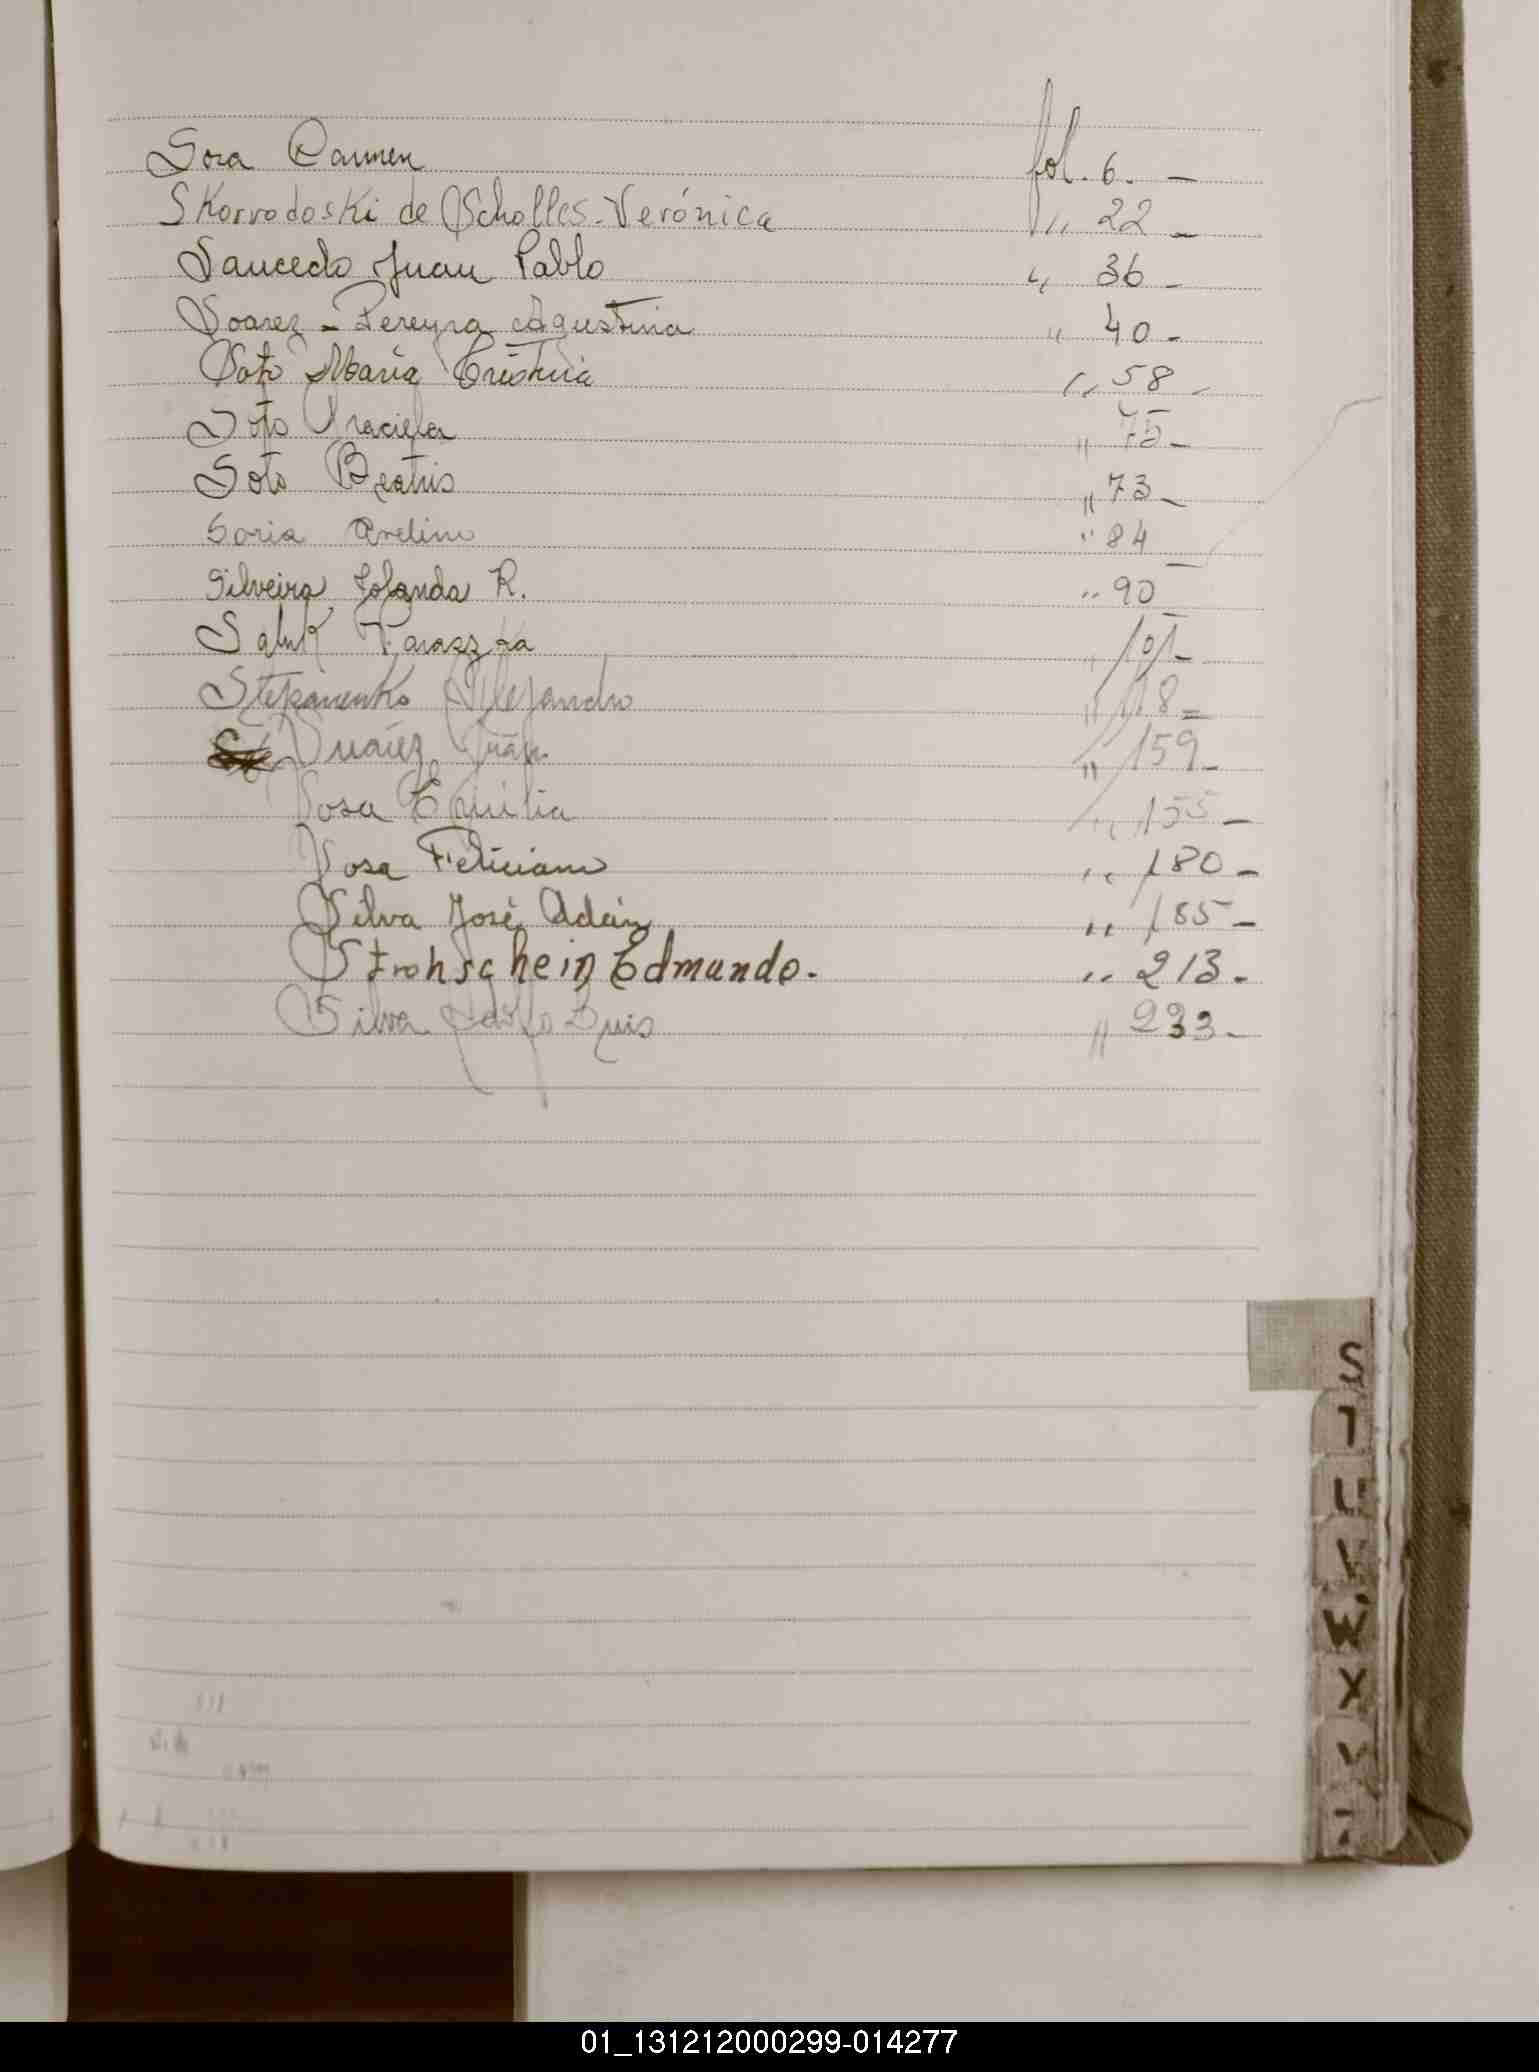 Sosa Carmen fol. 6. —
Skorvodoski de Scholles - Verónica ,, 22 —
Saucedo Juan Pablo ,, 36 -
Soarez - Pereyra Agustina ,, 40 -
Soto María Cristina ,, 58 -
Soto Graciela ,, 75 -
Soto Beatris ,, 73 -
Soria Avelino ,, 84 -
Silveira, Iolanda R. ,, 90 -
Saluk Paraszka ,, 101 -
Stepanenko Alejandro ,, 118 -
Suárez Juan ,, 159 -
Sosa Emilia ,, 155 -
Sosa Feliciano ,, 180 -
Silva José Adán ,, 185 -
Strohschein Edmundo. ,, 213 -
Silva Adolfo Luis ,, 233 -
S
T
U
V
W
X
Y
Z
01_131212000299-014277